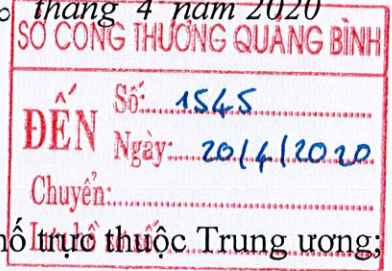 tháng 4 năm 2020
SỞ CÔNG THƯƠNG QUẢNG BÌNH
ĐẾN
Số: 1545
Ngày: 20/4/2020
Chuyển:
trực thuộc Trung ương;